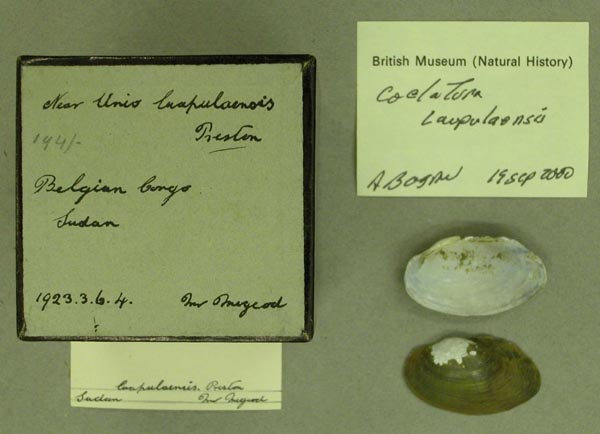 Near Unio luapulaensis
Preston
1941-
Belgian Congo
Sudan
1923.3.6.4. Mr Megeod
luapulaensis. Preston
Sudan Mr Megeod
British Museum (Natural History)
Coelatura
Laupulaensis
A BOGAN 19 Sep 2000